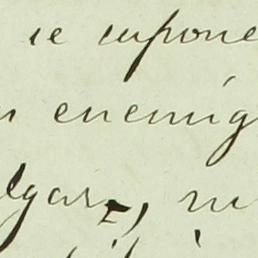 se supone
enemig
lgar, ni